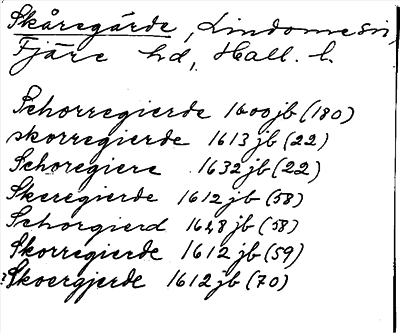 Skåregärde, Lindome sn,
Fjäre hd, Hall. l.
Schorregierde 1600 jb (180)
skorregierde 1613 jb (22)
Schoregiere 1632 jb (22)
Skeregierde 1612 jb (58)
Schorgierd 1628 jb (58)
Skorregierde 1612 jb (59)
?Skoergjerde 1612 jb (70)